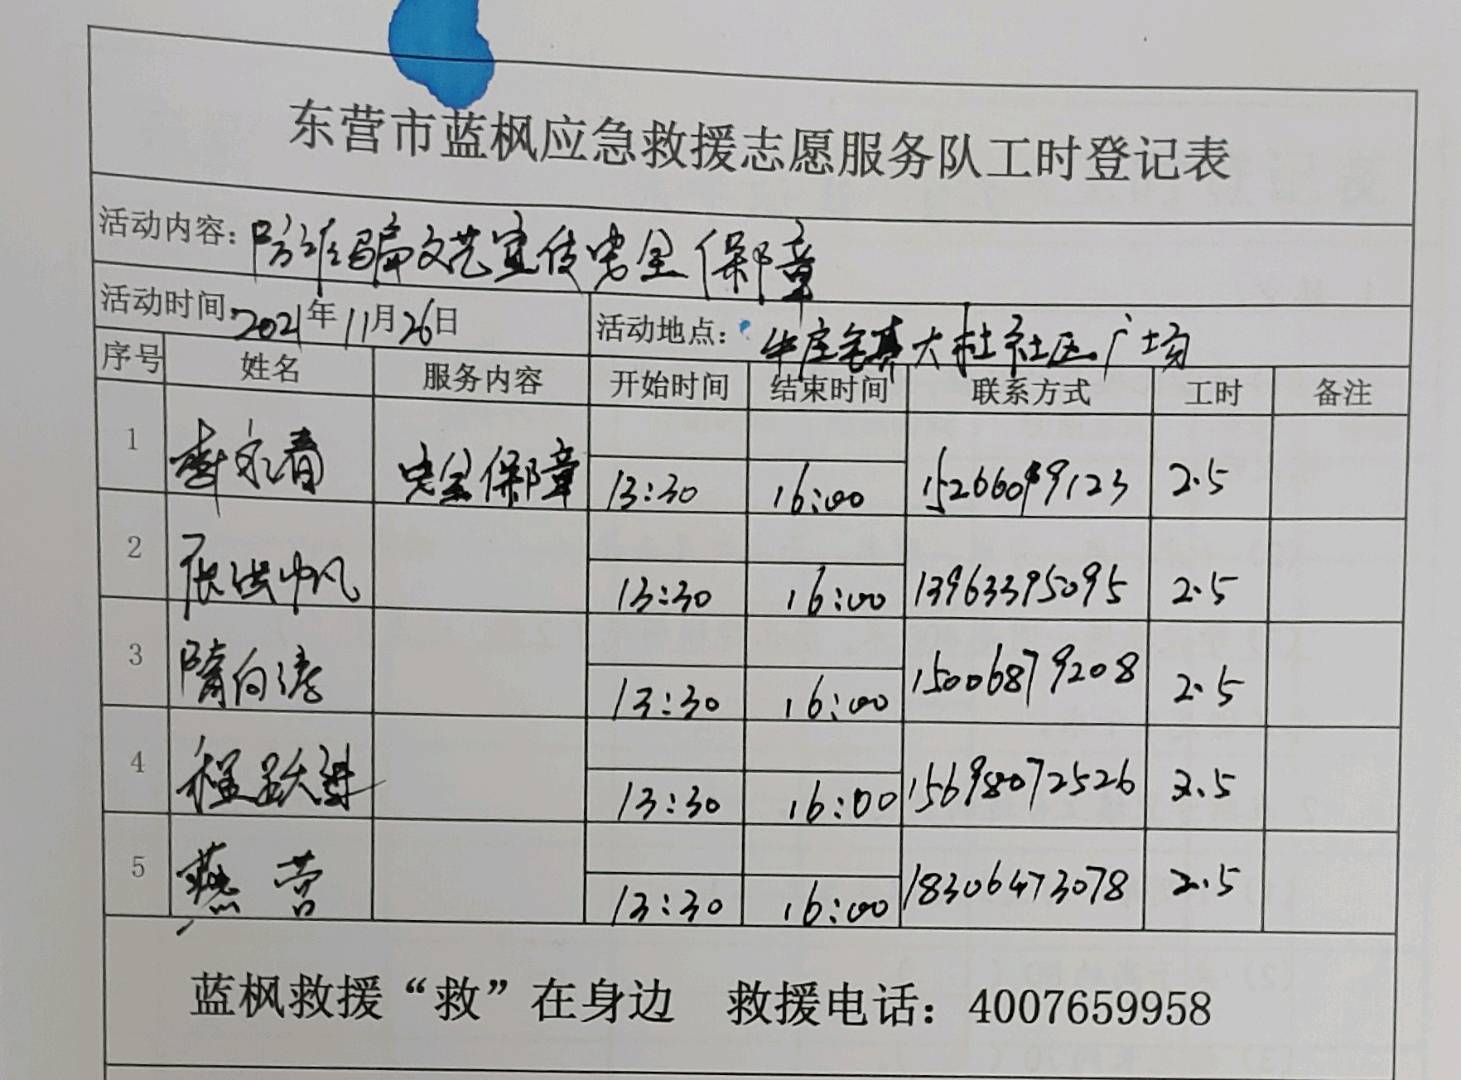 东营市蓝枫应急救援志愿服务队工时登记表
活动内容：防诈骗文艺宣传安全保障
活动时间：2021年11月26日 活动地点：牛庄镇大杜社区广场
序号 姓名 服务内容 开始时间 结束时间 联系方式 工时 备注
1 李永春 安全保障 13:30 16:00 2.5
2 张洪帆 13:30 16:00 13963395095 2.5
3 隋向涛 13:30 16:00 15006879208 2.5
4 程跃进 13:30 16:00 15698072526 2.5
5 燕营 13:30 16:00 18306473078 2.5
蓝枫救援“救”在身边 救援电话：4007659958